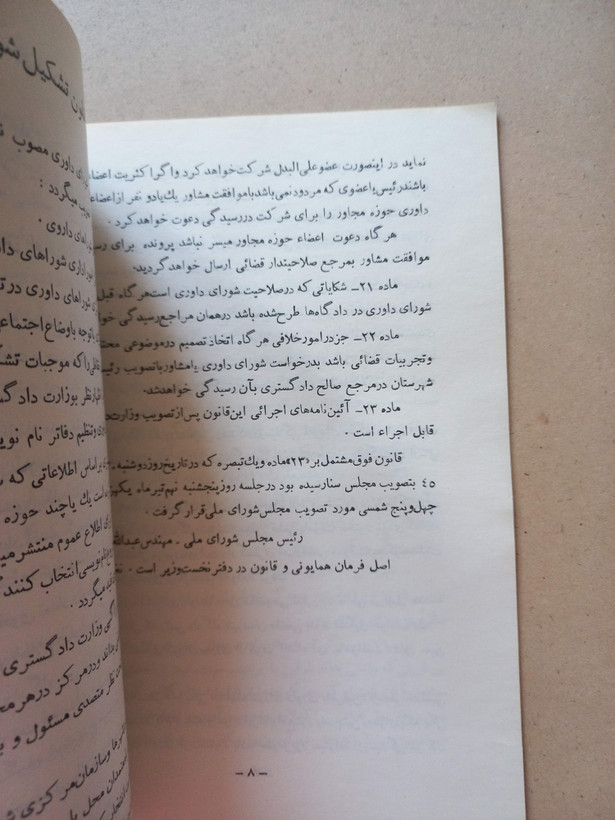 نماید در اینصورت عضو علی‌البدل شرکت خواهد کرد و اگر اکثریت اعضاء
باشند رئیس یا عضوی که مردود نمی‌باشد با موافقت مشاور یك یا دو نفر از اعضاء
داوری حوزه مجاور را برای شرکت در رسیدگی دعوت خواهد کرد .
هرگاه دعوت اعضاء حوزه مجاور میسر نباشد پرونده برای
موافقت مشاور بمرجع صلاحیتدار قضائی ارسال خواهد گردید.
ماده ۲۱ـ شکایاتی که در صلاحیت شورای داوری است هرگاه قبل
شورای داوری در دادگاه‌ها طرح شده باشد در همان مراجع رسیدگی
ماده ۲۲ـ جز در امور خلافی هرگاه اتخاذ تصمیم در موضوعی
و تجربیات قضائی باشد بدرخواست شورای داوری یا مشاور با تصویب
شهرستان در مرجع صالح دادگستری بآن رسیدگی خواهد شد.
ماده ۲۳ـ آئین‌نامه‌های اجرائی این قانون پس از تصویب
قابل اجراء است .
قانون فوق مشتمل بر «۲۳» ماده و یك تبصره که در تاریخ روز دوشنبه
٤٥ بتصویب مجلس سنا رسیده بود در جلسه روز پنجشنبه نهم تیر ماه
چهل و پنج شمسی مورد تصویب مجلس شورای ملی قرار گرفت .
رئیس مجلس شورای ملی ـ مهندس
اصل فرمان همایونی و قانون در دفتر نخست وزیر است .
ـ ۸ ـ
تشکیل
داوری مصوب
میگردد :
داوری .
شوراهای
شوراهای داوری در
توجه باوضاع اجتماعی
را که موجبات
نظر بوزارت
و تنظیم دفاتر نام
بر اساس اطلاعاتی که
است یك یا چند حوزه
اطلاع عموم منتشر
انتخاب
میگردد .
وزارت دادگستری
و در مرکز در هر
نظر متصدی مسئول و
و سازمان مرکزی
محل